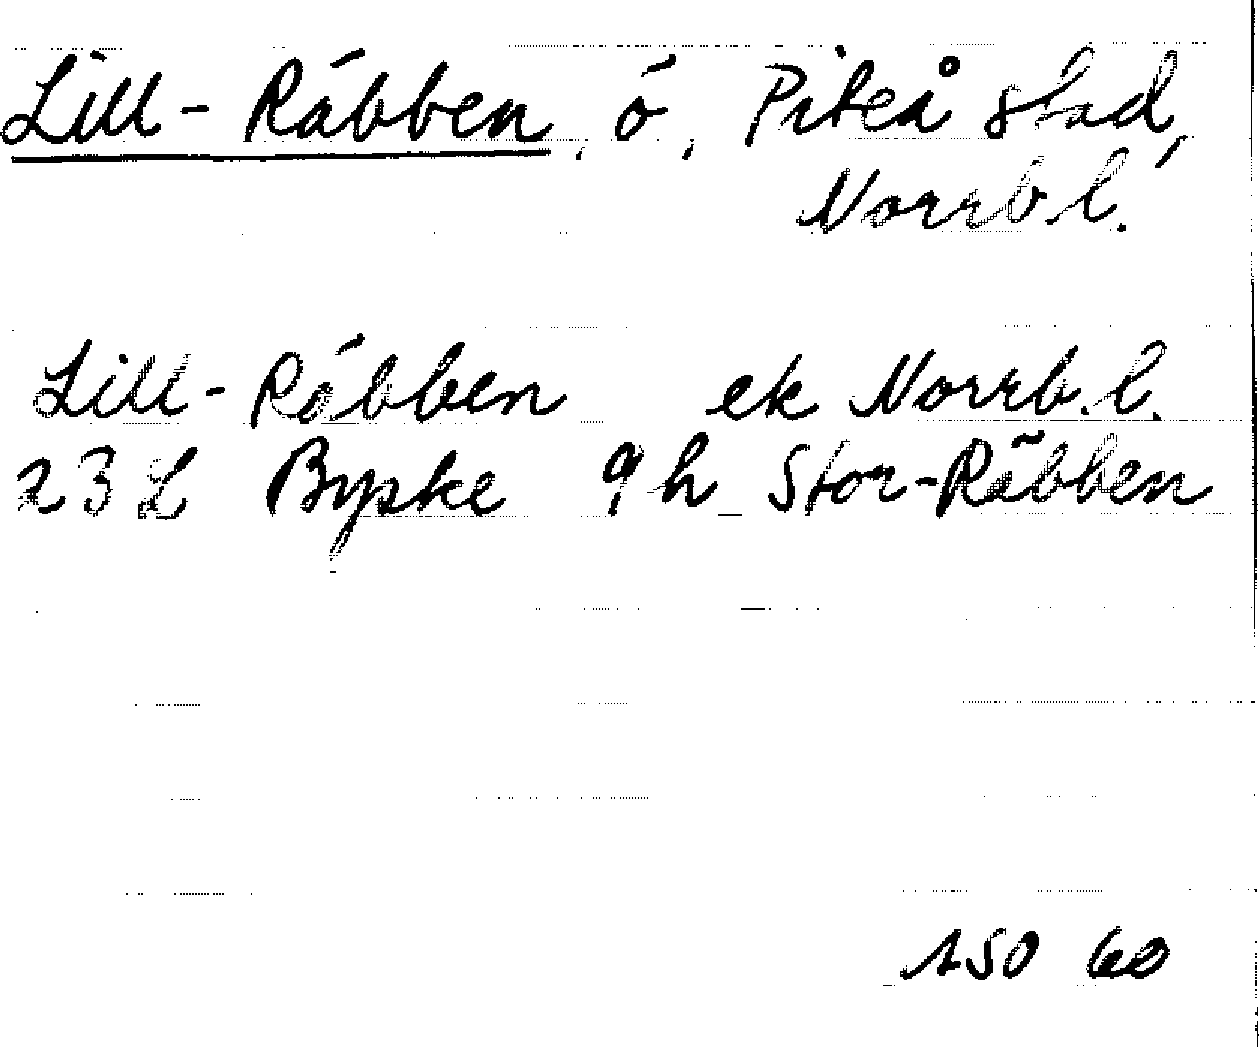 Lill-Räbben, ö, Piteå stad,
Norrb.l.
Lill-Räbben ek Norrb.l.
23 L Byske 9 h Stor-Räbben
150 60